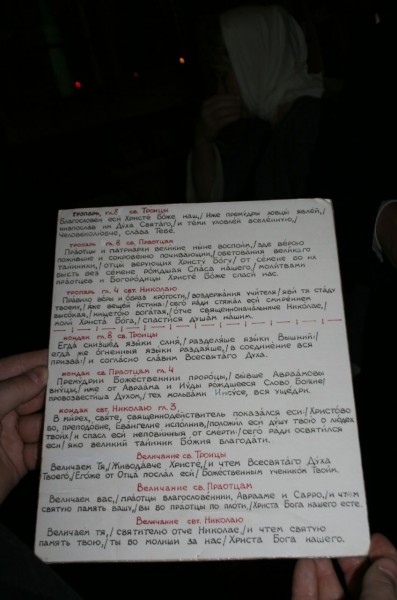 Тропарь, гл.8 св. Троицы
Благословен еси́ Христе́ Бо́же наш,/ Иже прему́дры ловцы́ явле́й,/
низпосла́в им Ду́ха Свята́го,/ и те́ми уловле́й вселе́нную,/
Человеколю́бче, сла́ва Тебе́.
тропарь гл. 8 св. Праотцам
Пра́отцы и матриархи великие ны́не воспои́м,/ зде ве́рою
пожи́вшие и сокрове́нно почива́ющии,/
та́инники,/ отцы́ ве́рующих Христу́ Бо́гу/ от се́мене бо их
высть без се́мене рожда́шая Спа́са на́шего,/ моли́твами
пра́отцев и Богоро́дицы Христе́ Бо́же спаси́ нас.
тропарь гл. 4 свт Николаю
Пра́вило ве́ры и о́браз кро́тости,/ воздержа́ния учи́теля/ яви́ тя ста́ду
твоему́/ я́же веще́й и́стина:/ сего́ ра́ди стяжа́л еси́ смире́нием
высо́кая,/ нището́ю бога́тая,/ о́тче священнонача́льниче Нико́лае,/
моли́ Христа́ Бо́га,/ спасти́ся душа́м на́шим.
кондак гл.8 св. Троицы
Егда́ снизше́д язы́ки слия́,/ разделя́ше язы́ки Вы́шний:/
егда́ же о́гненныя язы́ки раздая́ше,/ в соедине́ние вся
призва́:/ и согла́сно сла́вим Всесвята́го Ду́ха.
кондак св. Праотцам гл. 4
Прему́дрии Боже́ственнии проро́цы,/ бы́вше Авраа́мовы
вну́цы,/ и́же от Авраа́ма и Иу́ды ро́ждшееся Сло́во Бо́жие/
провозвести́ша Ду́хом,/ тех мольба́ми Иису́се, вся уще́дри.
кондак свт, Николаю гл 3,
В Ми́рех, свя́те, священноде́йствитель показа́лся еси́:/ Христо́во
бо, преподо́бне, Ева́нгелие испо́лнив,/ положи́л еси́ ду́шу твою́ о лю́дех
твои́х/ и спасл еси́ непови́нныя от сме́рти:/ сего́ ра́ди освяти́лся
еси́/ я́ко вели́кий таи́нник Бо́жия благода́ти.
Величание св. Троицы
Велича́ем Тя,/ Живода́вче Христе́,/ и чтем Всесвята́го Ду́ха
Твоего́,/ Его́же от Отца́ посла́л еси́/ Боже́ственным ученико́м Твои́м.
Величание св. Праотцам
Велича́ем вас,/ пра́отцы благослове́ннии, Авраа́ме и Са́рро,/ и чтем
святу́ю па́мять ва́шу,/ вы во пра́отцы по пло́ти,/ Христа́ Бо́га на́шего есте.
Величание свт. Николаю
Велича́ем тя,/ святи́телю о́тче Нико́лае,/ и чтем святу́ю
па́мять твою́,/ ты бо мо́лиши за нас/ Христа́ Бо́га на́шего.